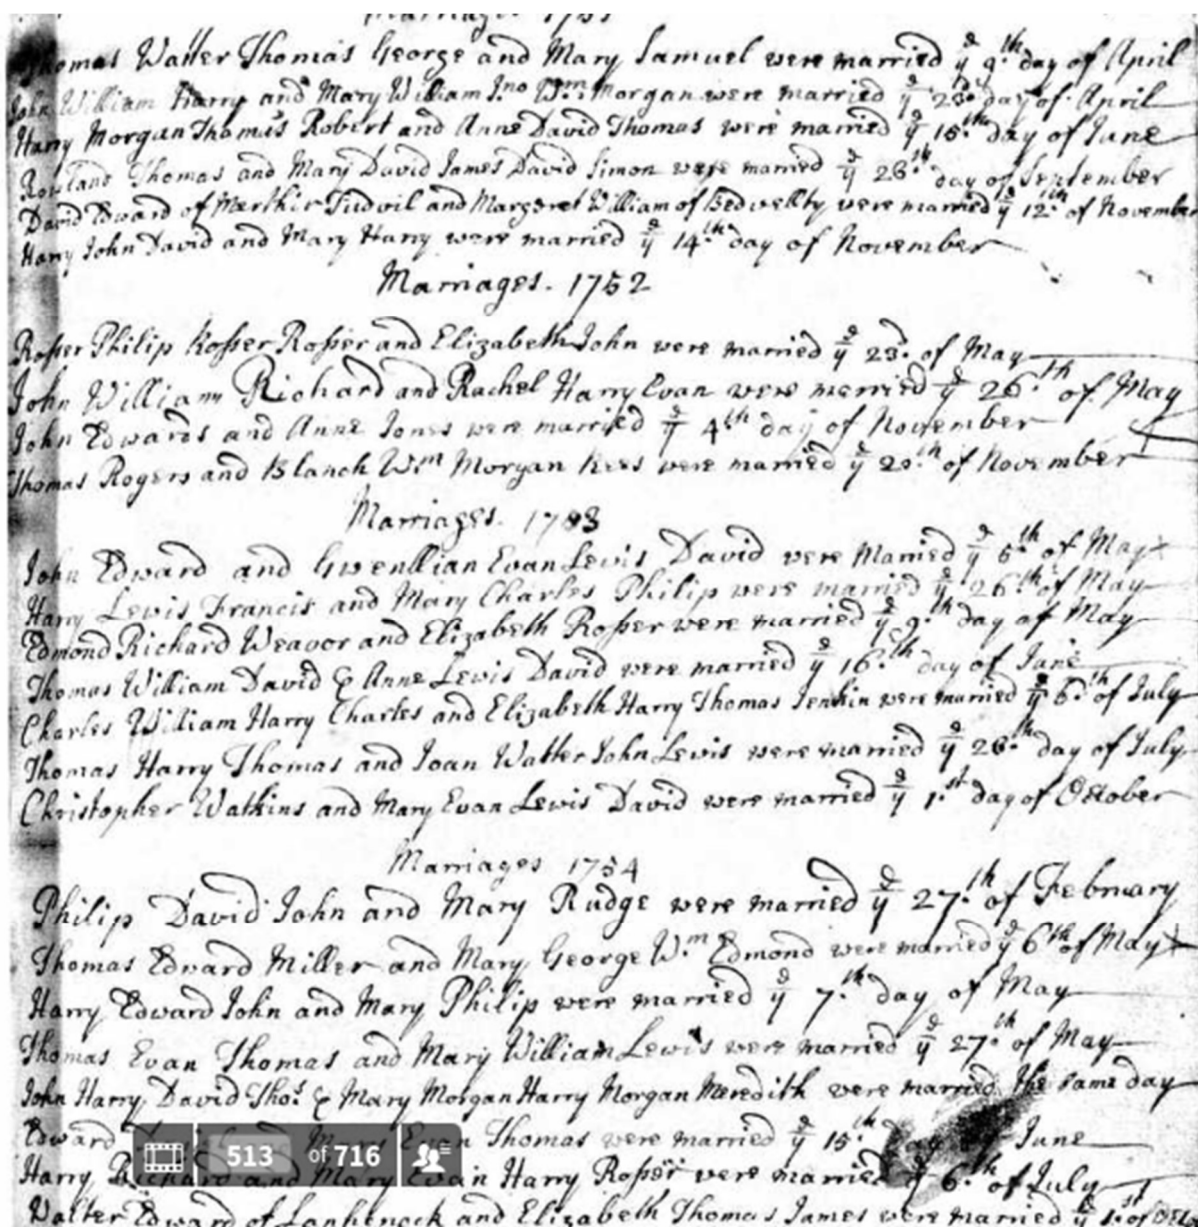 Marriages 1751
Thomas Walter Thomas George and Mary Samuel were married ye 9.th day of April
John William Harry and Mary William Jno Wm. Morgan were married ye 23d day of April
Harry Morgan Thomas Robert and Anne David Thomas were married ye 15.th day of June
Rowland Thomas and Mary David James David Simon were married ye 26.th day of September
David Edward of Merthir Tudvil and Margaret William of Bedwellty were married ye 12.th of November
Harry John David and Mary Harry were married ye 14.th day of November
Marriages. 1752
Rosser Philip Rosser Rosser and Elizabeth John were married ye 23d. of May
John William Richard and Rachel Harry Evan were married ye 26.th of May
John Edwards and Anne Jones were married ye 4th day of November
Thomas Rogers and Blanch Wm Morgan Rees were married ye 20.th of November
Marriages. 1753
John Edward and Gwenllian Evan Lewis David were Married ye 5.th of May
Harry Lewis Francis and Mary Charles Philip were married ye 26.th of May
Edmond Richard Weavor and Elizabeth Rosser were married ye 9.th day of May
Thomas William David & Anne Lewis David were married ye 16.th day of June
Charles William Harry Charles and Elizabeth Harry Thomas Jenkin were married ye 6.th of July
Thomas Harry Thomas and Joan Walter John Lewis were married ye 26.th day of July
Christopher Watkins and Mary Evan Lewis David were married ye 1.st day of October
Marriages 1754
Philip David John and Mary Rudge were married ye 27.th of February
Thomas Edward Miller and Mary George W.m Edmond were married ye 6th of May
Harry Edward John and Mary Philip were married ye 7.th day of May
Thomas Evan Thomas and Mary William Lewis were married ye 27.th of May
John Harry David Thos. & Mary Morgan Harry Morgan Meredith were married the same day
Edward and Mary Evan Thomas were married ye 15.th June
513 of 716
Harry Richard and Mary Evan Harry Rosser were married ye 6.th of July
Walter Edward of and Elizabeth Thomas James were married ye 1.st of